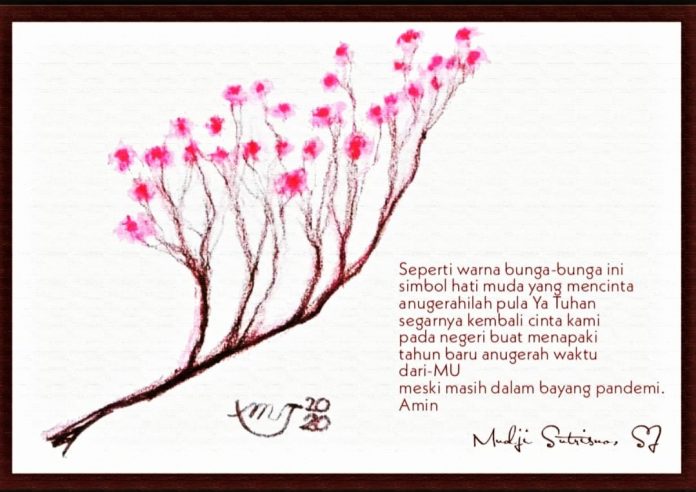 Seperti warna bunga-bunga ini
simbol hati muda yang mencinta
anugerahilah pula Ya Tuhan
segarnya kembali cinta kami
pada negeri buat menapaki
tahun baru anugerah waktu
dari-MU
meski masih dalam bayang pandemi.
Amin
Mudji Sutrisno, SJ
2020